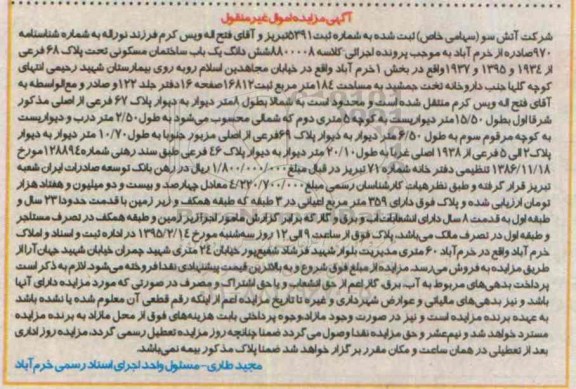 آگهی مزایده اموال غیر منقول
شرکت آتش سو (سهامی خاص) ثبت شده به شماره ثبت ۵۳۹۱تبریز و آقای فتح اله ویس کرم فرزند نوراله به شماره شناسنامه
۹۷۰صادره از خرم آباد به موجب پرونده اجرائی کلاسه ۸۸۰۰۰۰۸ شش دانگ یک باب ساختمان مسکونی تحت پلاک ۶۸ فرعی
از ۱۹۳۴ و ۱۳۹۵ و ۱۹۳۷واقع در بخش ۱خرم آباد واقع در خیابان مجاهدین اسلام روبه روی بیمارستان شهید رحیمی انتهای
کوچه گلها جنب داروخانه تخت جمشید به مساحت ۱۸۴متر مربع ثبت۱۶۸۱۲ صفحه ۱۶دفتر جلد ۱۲۲و صادر و مع‌الواسطه به
آقای فتح اله ویس کرم منتقل شده است و محدود است به شمالا بطول ۸متر دیوار به دیوار پلاک ۶۷ فرعی از اصلی مذکور
شرقا اول بطول ۱۵/۵۰متر دیواریست به کوچه ۵ متری دوم که شمالی محسوب می‌شود به طول ۲/۵۰ متر درب و دیواریست
به کوچه مرقوم سوم به طول ۶/۵۰ متر دیوار به دیوار پلاک ۶۹فرعی از اصلی مزبور جنوبا به طول ۱۰/۷۰ متر دیوار به دیوار
پلاک۲ الی ۵ فرعی از ۱۹۳۸ اصلی غربا به طول ۲۰/۱۰ متر دیوار به دیوار پلاک ۴۶ فرعی طبق سند رهنی شماره ۱۲۸۸۹۴مورخ
۱۳۸۶/۱۱/۱۸ تنظیمی دفتر خانه شماره ۷۱ تبریز در قبال مبلغ ۱/۸۰۰/۰۰۰/۰۰۰ ریال در رهن بانک توسعه صادرات ایران شعبه
تبریز قرار گرفته و طبق نظر هیات کارشناسان رسمی مبلغ ۴/۲۲۰/۷۰۰/۰۰۰ معادل چهارصد و بیست و دو میلیون و هفتاد هزار
تومان ارزیابی شده و پلاک فوق دارای ۳۵۹ متر مربع اعیانی در ۳ طبقه که طبقه همکف و زیر زمین با قدمت حدودا ۲۳ سال و
طبقه اول به قدمت ۸ سال دارای انشعابات آب و برق و گاز که برابر گزارش مامور اجرا زیر زمین و طبقه همکف در تصرف مستاجر
و طبقه اول در تصرف مالک می‌باشد. پلاک فوق از ساعت ۹ الی ۱۲ روز سه‌شنبه مورخ ۱۳۹۵/۲/۱۴ در اداره ثبت و اسناد و املاک
خرم آباد واقع در خرم‌آباد ۶۰ متری مدیریت بلوار شهید فرشاد شفیع‌پور خیابان ۲۴ متری شهید چمران خیابان شهید جهان آرا از
طریق مزایده به فروش می‌رسد. مزایده از مبلغ فوق شروع و به بالاترین قیمت پیشنهادی نقدا فروخته می‌شود. لازم به ذکر است
پرداخت بدهی‌های مربوط به آب، برق، گاز اعم از حق انشعاب و یا حق اشتراک و مصرف در صورتی که مورد مزایده دارای آنها
باشد و نیز بدهی‌های مالیاتی و عوارض شهرداری و غیره تا تاریخ مزایده اعم از اینکه رقم قطعی آن معلوم شده یا نشده باشد
به عهده برنده مزایده است و نیز در صورت وجود مازاد وجوه پرداختی بابت هزینه‌های فوق از محل مازاد به برنده مزایده
مسترد خواهد شد و نیم‌عشر و حق مزایده نقدا وصول می‌گردد ضمنا چنانچه روز مزایده تعطیل رسمی گردد، مزایده روز اداری
بعد از تعطیلی در همان ساعت و مکان مقرر برگزار خواهد شد ضمنا پلاک مذکور بیمه نمی‌باشد.
مجید طاری - مسئول واحد اجرای اسناد رسمی خرم آباد